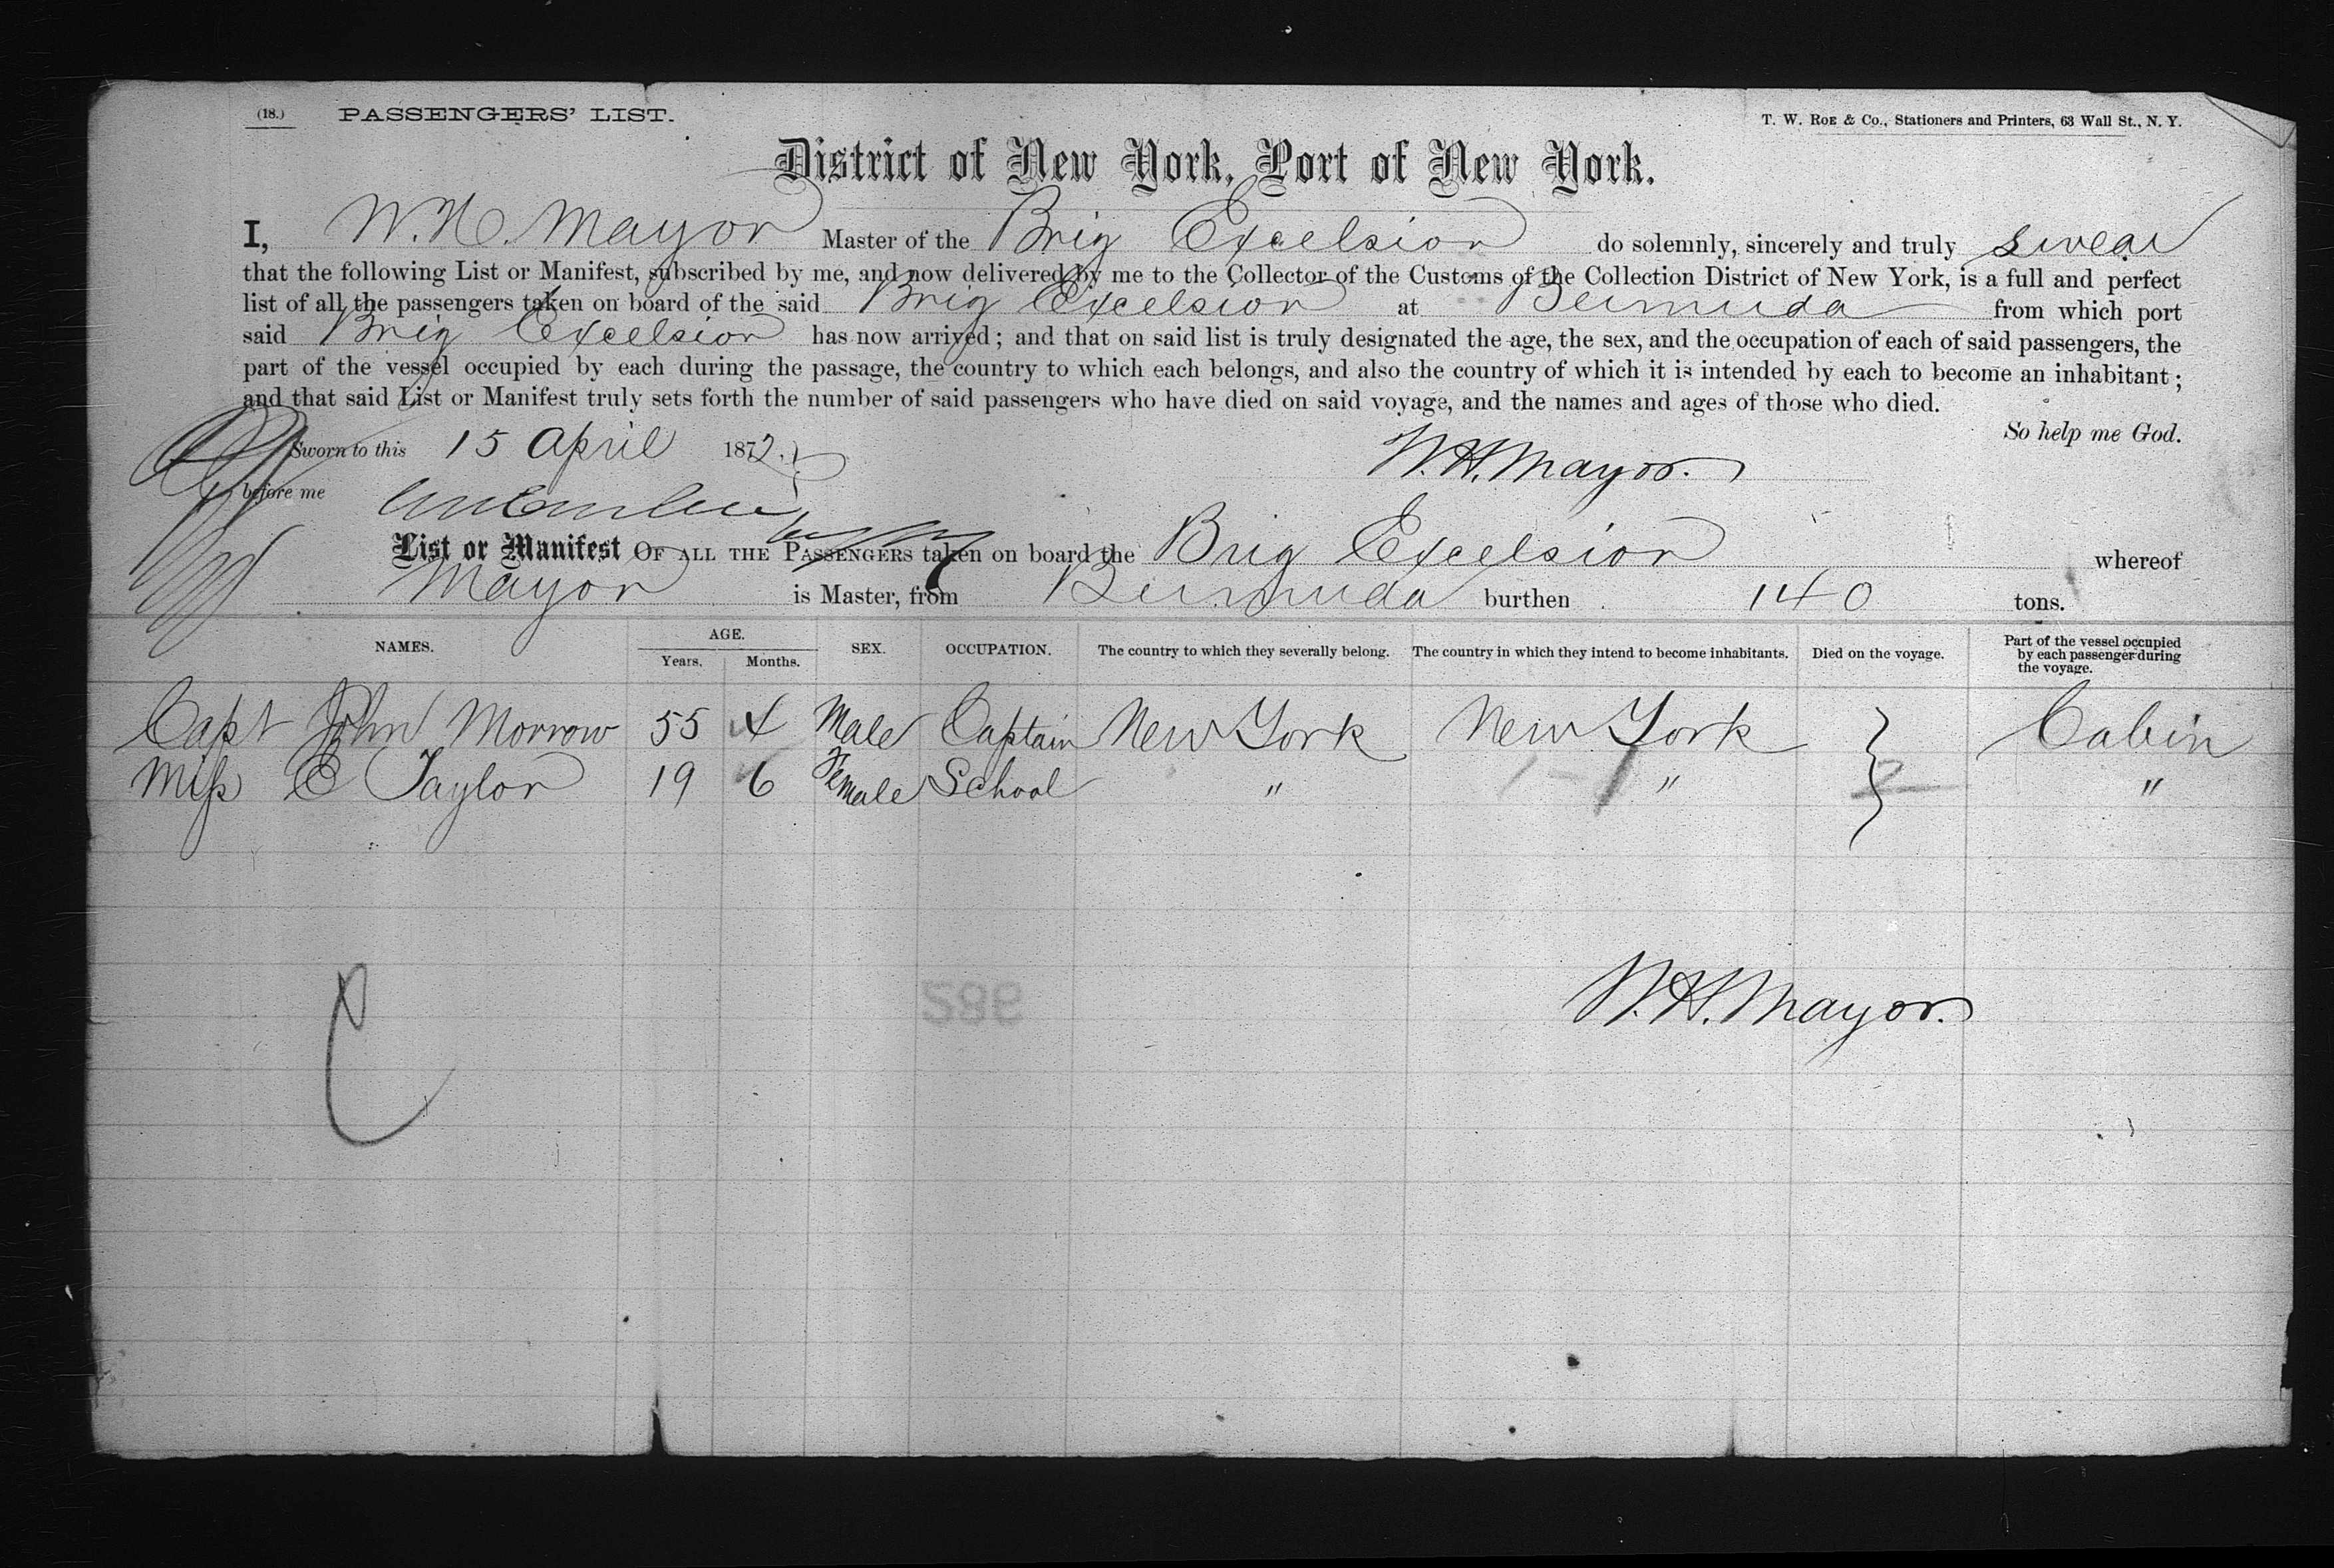 (18.) PASSENGERS' LIST. T. W. Roe & Co., Stationers and Printers, 63 Wall St., N. Y.
District of New York, Port of New York.
I, W. H. Mayor Master of the Brig Excelsior do solemnly, sincerely and truly swear
that the following List or Manifest, subscribed by me, and now delivered by me to the Collector of the Customs of the Collection District of New York, is a full and perfect
list of all the passengers taken on board of the said Brig Excelsior at Bermuda from which port
said Brig Excelsior has now arrived; and that on said list is truly designated the age, the sex, and the occupation of each of said passengers, the
part of the vessel occupied by each during the passage, the country to which each belongs, and also the country of which it is intended by each to become an inhabitant;
and that said List or Manifest truly sets forth the number of said passengers who have died on said voyage, and the names and ages of those who died.
So help me God.
Sworn to this 15 April 1872. W. H. Mayor.
before me
List or Manifest OF ALL THE PASSENGERS taken on board the Brig Excelsior whereof
Mayor is Master, from Bermuda burthen 140 tons.
NAMES. AGE. Years. Months. SEX. OCCUPATION. The country to which they severally belong. The country in which they intend to become inhabitants. Died on the voyage. Part of the vessel occupied by each passenger during the voyage.
Capt John Morrow 55 4 Male Captain New York New York Cabin
Miss E Taylor 19 6 Female School " " 2 "
W. H. Mayor.